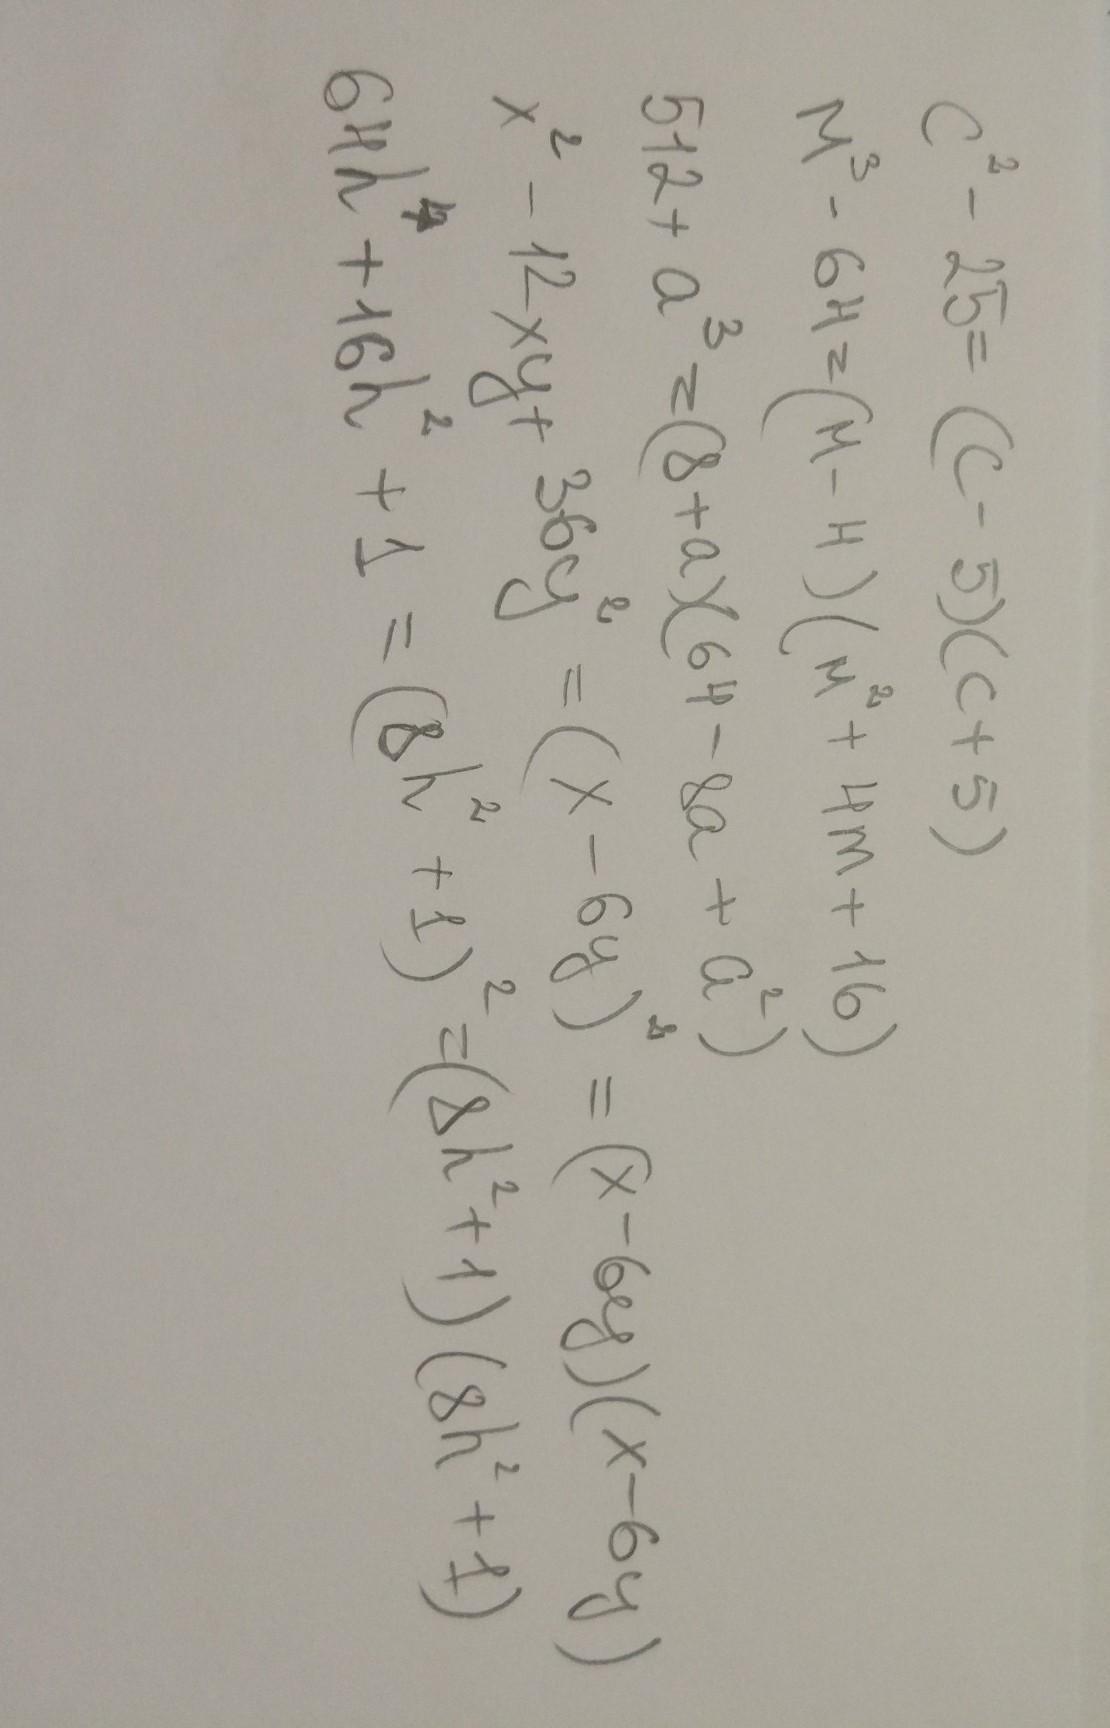 c² - 25 = (c - 5)(c + 5)
м³ - 64 = (м - 4)(м² + 4м + 16)
512 + a³ = (8 + a)(64 - 8a + a²)
x² - 12xy + 36y² = (x - 6y)² = (x - 6y)(x - 6y)
64h⁴ + 16h² + 1 = (8h² + 1)² = (8h² + 1)(8h² + 1)